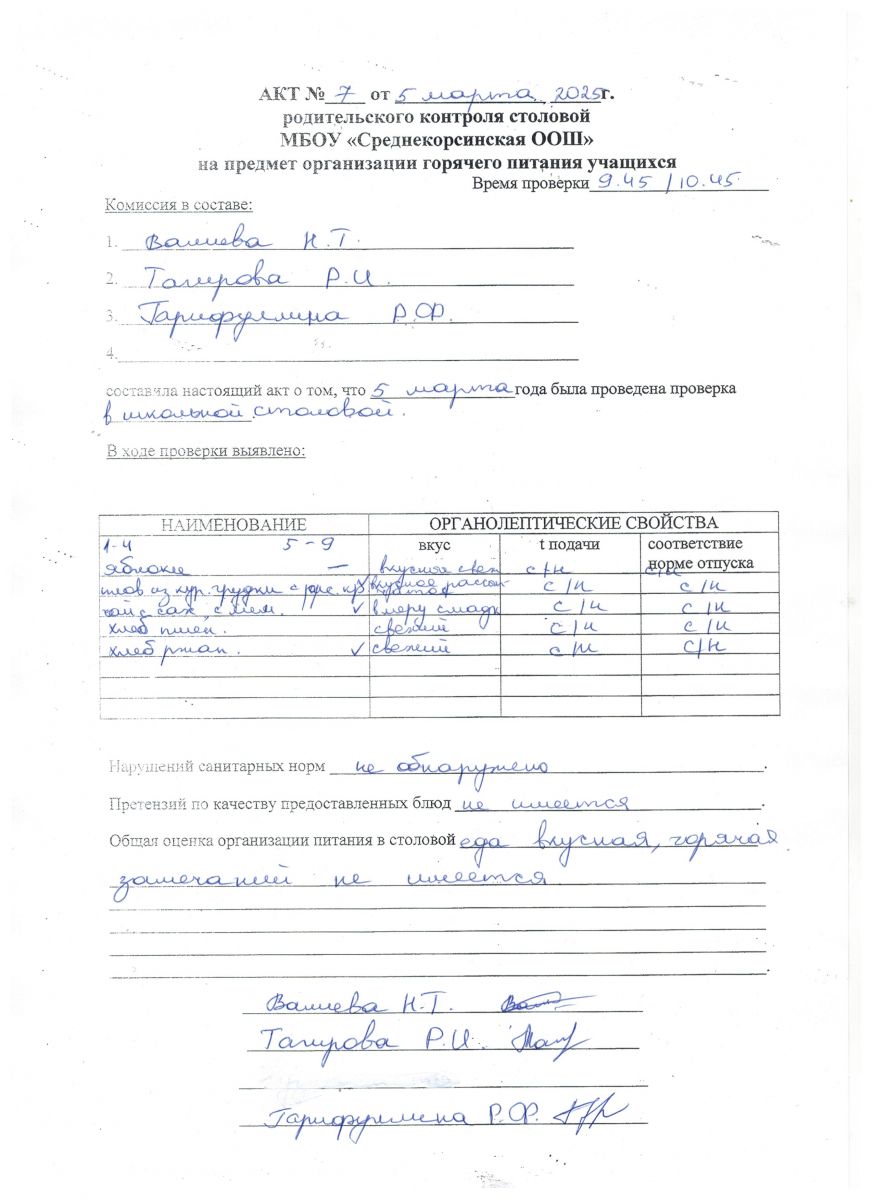 АКТ № 7 от 5 марта 2025г.
родительского контроля столовой
МБОУ «Среднекорсинская ООШ»
на предмет организации горячего питания учащихся
Время проверки 9.45 / 10.45
Комиссия в составе:
1. Валиева Н.Т.
2. Тагирова Р.И.
3. Гарифуллина Р.Ф.
4.
составила настоящий акт о том, что 5 марта года была проведена проверка
в школьной столовой.
В ходе проверки выявлено:
НАИМЕНОВАНИЕ ОРГАНОЛЕПТИЧЕСКИЕ СВОЙСТВА
1-4 5-9 вкус t подачи соответствие норме отпуска
яблоки — вкусное свеж с/н с/н
плов из кур. грудки с вкусное рассып с/н с/н
чай с сах, с лим. ✓ в меру сладк с/н с/н
хлеб пшен. свежий с/н с/н
хлеб ржан. ✓ свежий с/н с/н
Нарушений санитарных норм не обнаружено.
Претензий по качеству предоставленных блюд не имеется.
Общая оценка организации питания в столовой еда вкусная, горячая
замечаний не имеется
Валиева Н.Т.
Тагирова Р.И.
Гарифуллина Р.Ф.